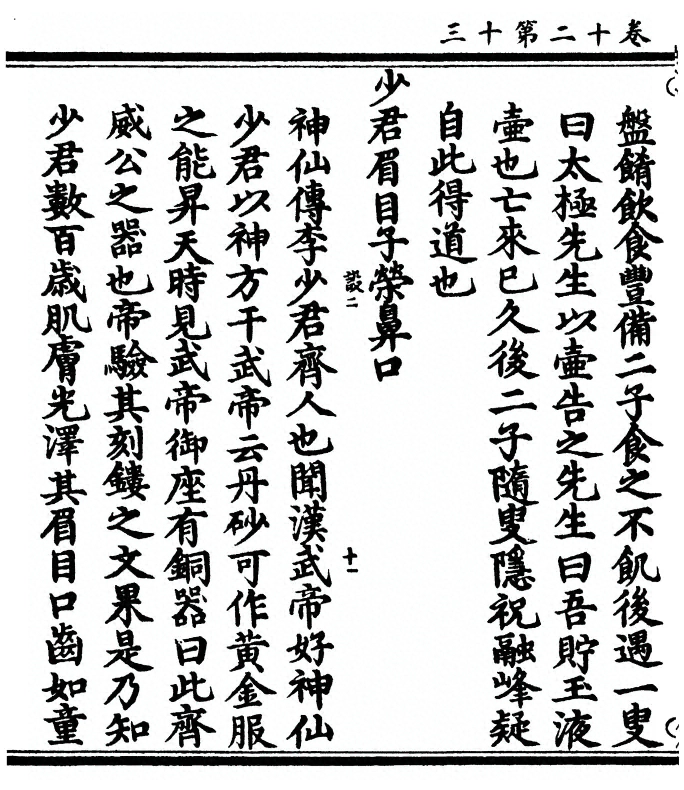 三十第二十卷
盤餚飲食豐備二子食之不飢後遇一叟
曰太極先生以壷告之先生曰吾貯玉液
壷也亡來已久後二子隨叟隱祝融峰疑
自此得道也
少君眉目子榮鼻口
神仙傳李少君齊人也聞漢武帝好神仙
少君以神方干武帝云丹砂可作黃金服
之能昇天時見武帝御座有銅器曰此齊
威公之器也帝驗其刻鏤之文果是乃知
少君數百歲肌膚光澤其眉目口齒如童
十一